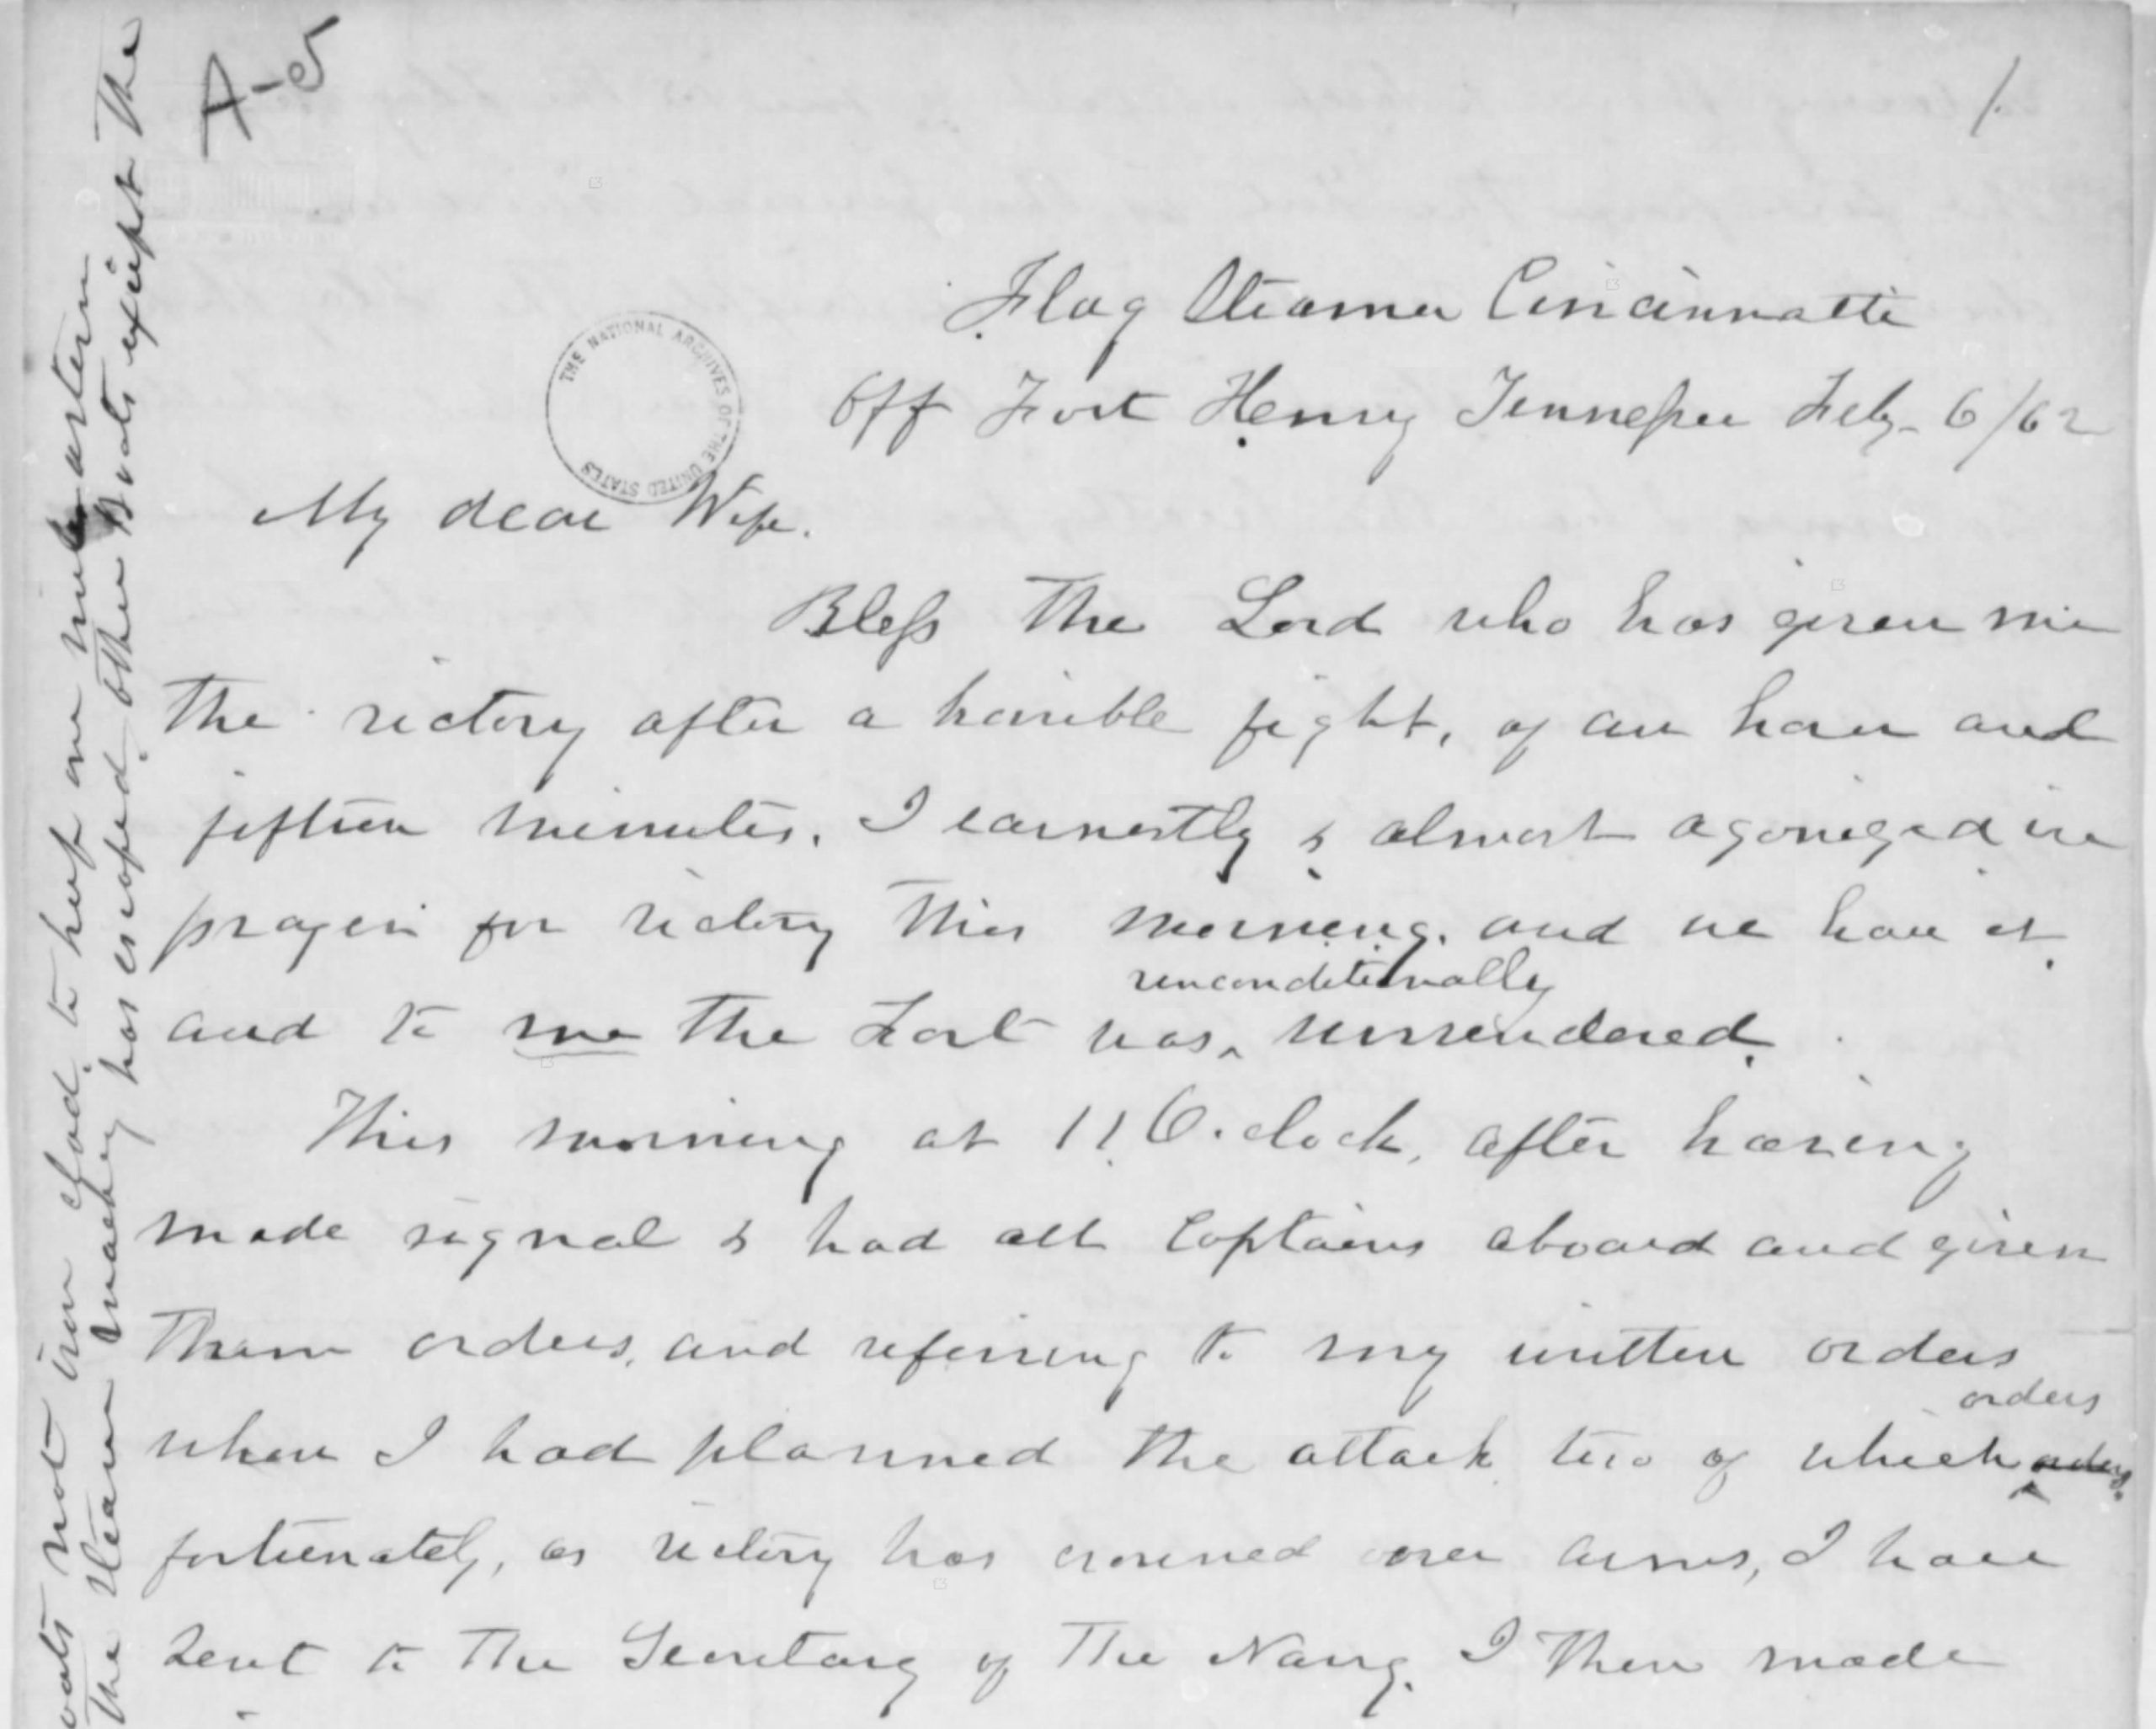 A-5
1.
Flag Steamer Cincinnatti
Off Fort Henry Tennessee Feby- 6/62
THE NATIONAL ARCHIVES OF THE UNITED STATES
My dear Wife.
Bless the Lord who has given me
the victory after a horrible fight, of an hour and
fifteen minutes. I earnestly & almost agonized in
prayer for victory this morning. and we have it.
unconditionally
and to me the Fort was ^ surrendered.
This morning at 11 O.clock, after having
made signal & had all Captains aboard and given
them orders, and refering to my written orders
orders
when I had planned the attack two of which ^ orders.
fortunately, as victory has crowned our arms, I have
sent to the Secretary of the Navy. I then made
oats not iron clad. to keep one mile astern
the steam making has escaped. other Boats except the